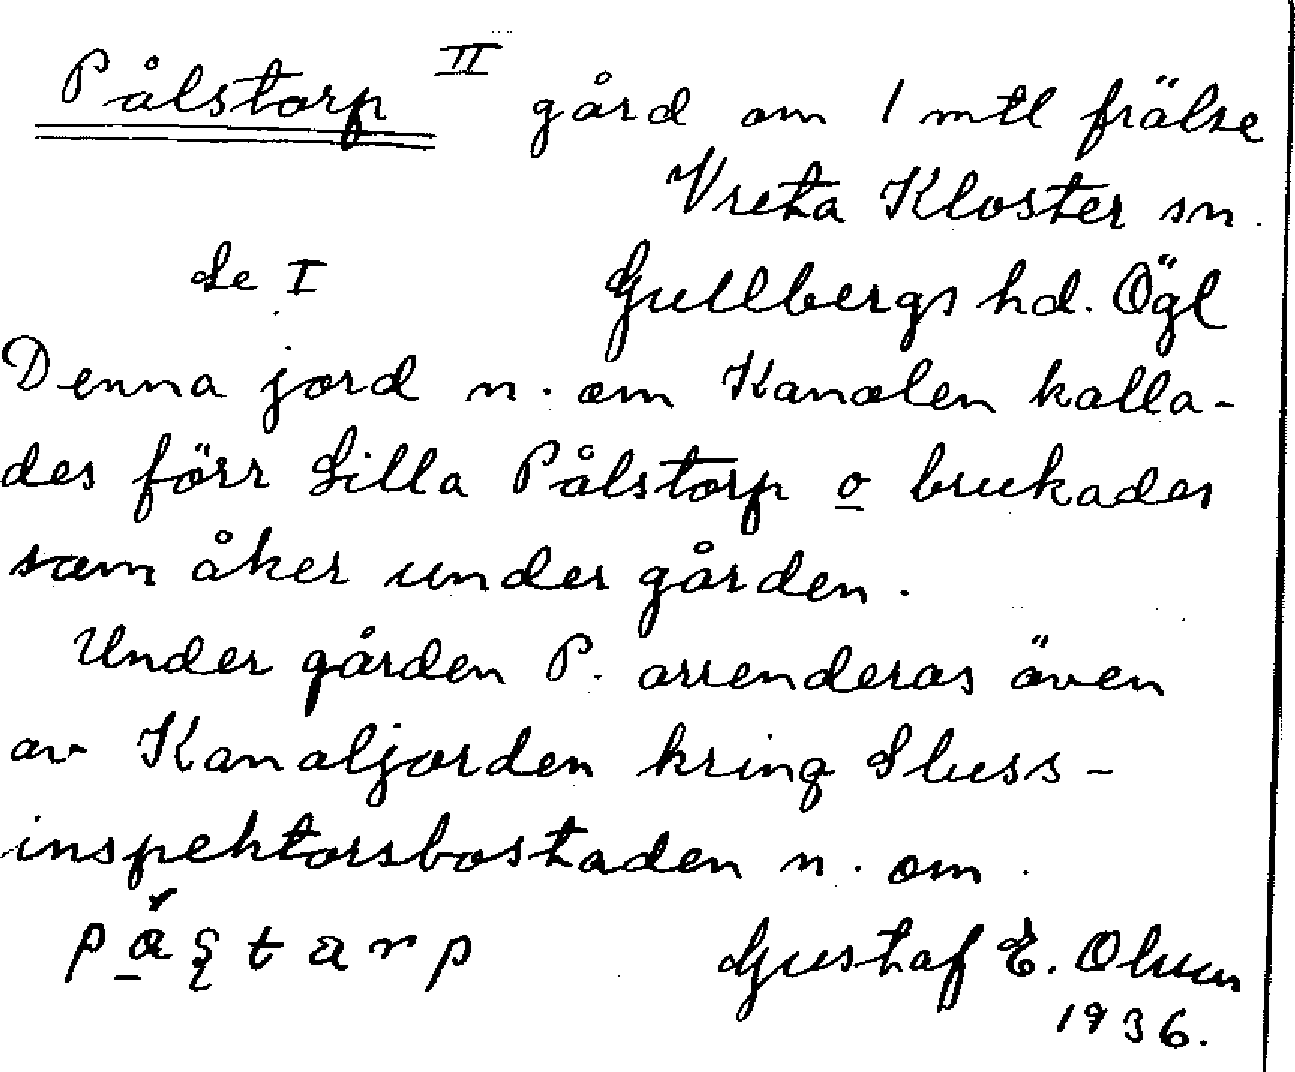 Pålstorp II gård om 1 mtl frälse
Vreta Kloster sn.
Se I Gullbergs hd. Ögl
Denna jord n. om Kanalen kalla-
des förr Lilla Pålstorp o brukades
som åker under gården.
Under gården P. arrenderas även
av Kanaljorden kring Sluss-
inspektorsbostaden n. om.
Gustaf E. Olsson
1936.